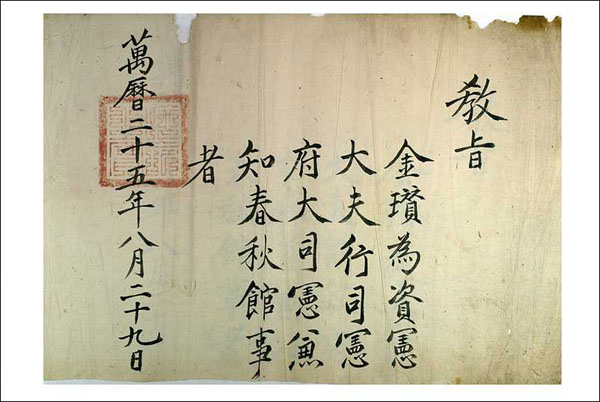 敎旨
金瓚為資憲
大夫行司憲
府大司憲兼
知春秋館事
者
萬曆二十五年八月二十九日